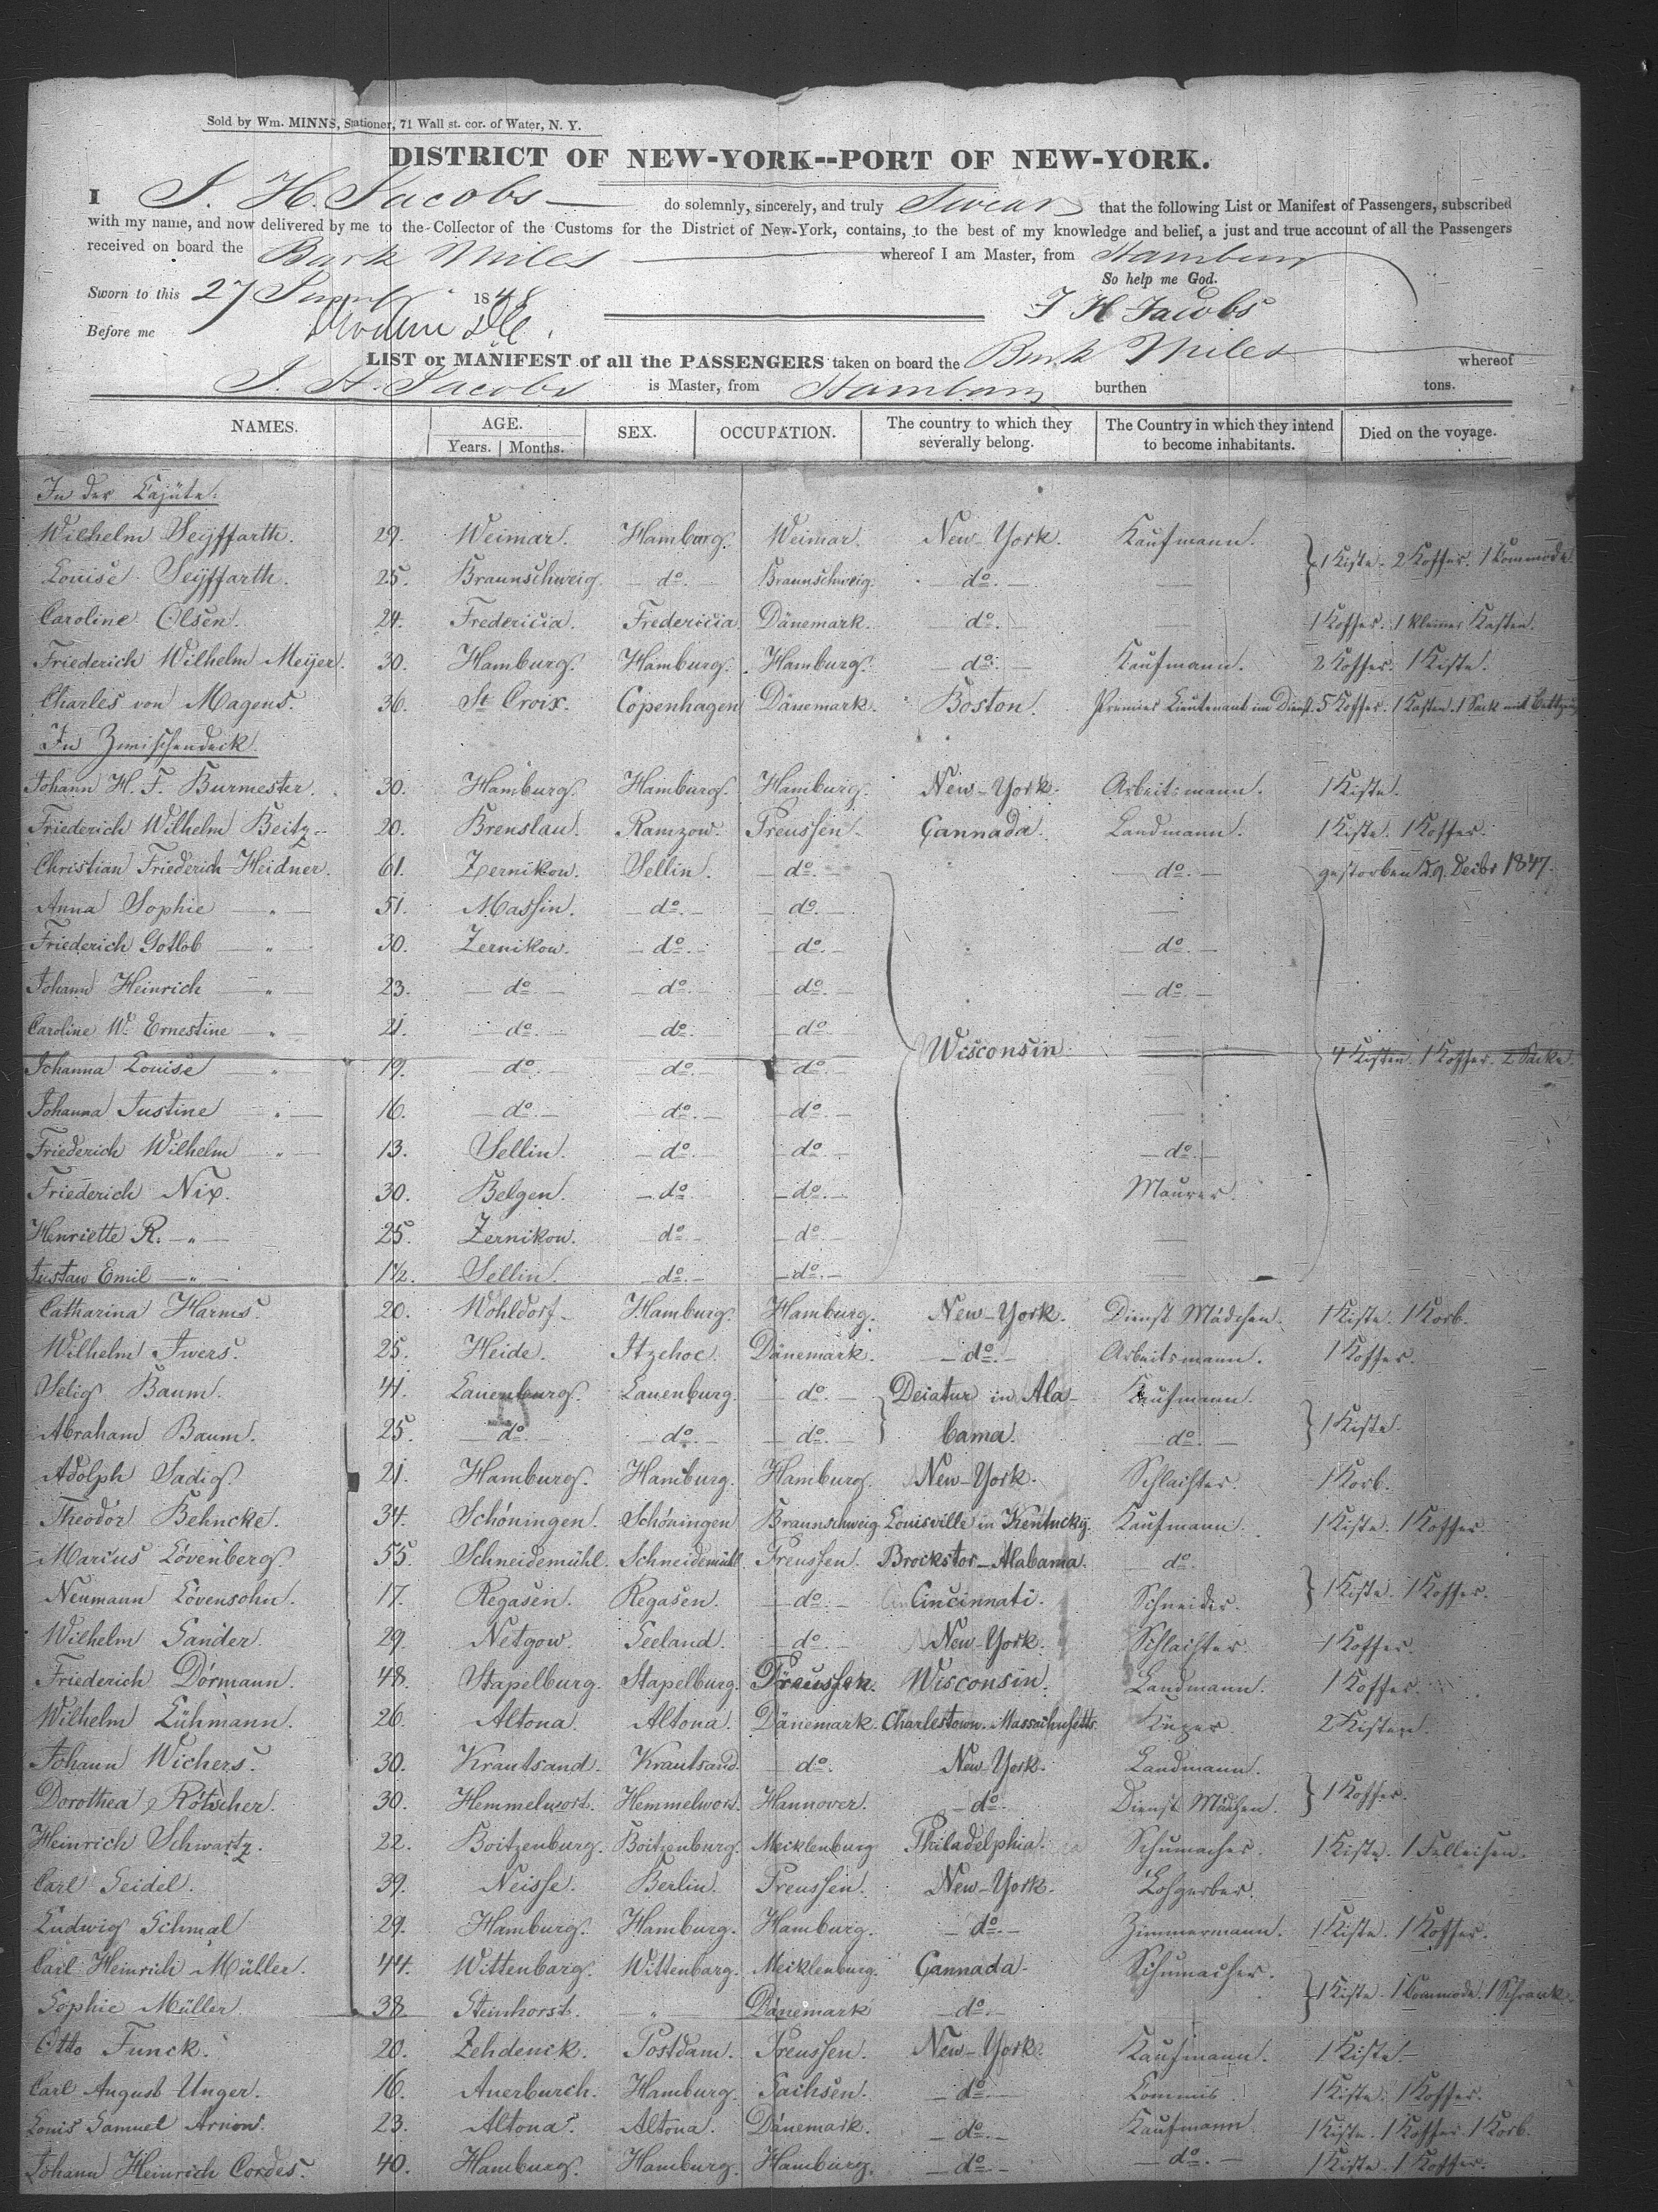 Sold by Wm. MINNS, Stationer, 71 Wall st. cor. of Water, N. Y.
DISTRICT OF NEW-YORK--PORT OF NEW-YORK.
I J. H. Jacobs do solemnly, sincerely, and truly Swear that the following List or Manifest of Passengers, subscribed
with my name, and now delivered by me to the Collector of the Customs for the District of New-York, contains, to the best of my knowledge and belief, a just and true account of all the Passengers
received on board the Bark Miles whereof I am Master, from Hamburg
So help me God.
Sworn to this 27 1848 J H Jacobs
Before me
LIST or MANIFEST of all the PASSENGERS taken on board the Bark Miles whereof
J. H. Jacobs is Master, from Hamburg burthen tons.
NAMES. AGE. Years. | Months. SEX. OCCUPATION. The country to which they severally belong. The Country in which they intend to become inhabitants. Died on the voyage.
In der Cajüte.
Wilhelm Seÿffarth. 29. Weimar. Hamburg. Weimar. New-York. Kaufmann.
1 Kiste. 2 Koffer. 1 Commode
Louise Seÿffarth. 25. Braunschweig. do. Braunschweig. do.
Caroline Olsen. 24. Fredericia. Fredericia. Dänemark. do. 1 Koffer. 1 kleiner Kasten.
Friederich Wilhelm Meÿer. 30. Hamburg. Hamburg. Hamburg. do. Kaufmann. 2 Koffer. 1 Kiste.
Charles von Magens. 36. St Croix. Copenhagen Dänemark. Boston. Premier Lieutenant im Dienst. 5 Koffer. 1 Kasten. 1 Sack mit
In Zwischendeck.
Johann H. F. Burmester. 30. Hamburg. Hamburg. Hamburg. New-York. Arbeitsmann. 1 Kiste.
Friederich Wilhelm Beitz 20. Brenslau. Ramzow. Preussen. Cannada. Landmann. 1 Kiste. 1 Koffer.
Christian Friederich Heidner. 61. Zernikow. Sellin. do. do. gestorben d. 9. Decbr 1847.
Anna Sophie " 51. Massin. do. do.
Friederich Gotlob " 30. Zernikow. do. do. do.
Johann Heinrich " 23. do. do. do. do.
Caroline W. Ernestine " 21. do. do. do.
Wisconsin. 4 Kisten. 1 Koffer. 2 Säcke.
Johanna Louise " 19. do. do. do.
Johanna Justine " 16. do. do. do.
Friederich Wilhelm " 13. Sellin. do. do. do.
Friederich Nix. 30. Belgen. do. do. Maurer.
Henriette R. " 25. Zernikow. do. do.
Gustaw Emil " 1½. Sellin. do. do.
Catharina Harms. 20. Wohldorf Hamburg. Hamburg. New-York. Dienst Mädchen. 1 Kiste. 1 Korb.
Wilhelm Iwers. 25. Heide. Itzehoe. Dänemark. do. Arbeitsmann. 1 Koffer.
Selig Baum. 41. Lauenburg. Lauenburg. do. Decatur in Ala- Kaufmann.
1 Kiste.
Abraham Baum. 25. do. do. do. bama. do.
Adolph Sadig. 21. Hamburg. Hamburg. Hamburg. New-York. Schlachter. 1 Korb.
Theodor Behncke. 34. Schöningen. Schöningen Braunschweig. Louisville in Kentuckÿ. Kaufmann. 1 Kiste. 1 Koffer
Marcus Lövenberg. 55. Schneidemühl. Schneidemühl Preussen. Brockstor-Alabama. do.
1 Kiste. 1 Koffer.
Neumann Lövensohn. 17. Regasen. Regasen. do. Cincinnati. Schneider.
Wilhelm Sander. 29. Netgow. Seeland. do. New-York. Schlachter. 1 Koffer.
Friederich Dörmann. 48. Stapelburg. Stapelburg. Preussen. Wisconsin. Landmann. 1 Koffer.
Wilhelm Lühmann. 26. Altona. Altona. Dänemark. Charlestown. Massachusetts. Küper. 2 Kisten.
Johann Wichers. 30. Krautsand. Krautsand. do. New-York. Landmann.
1 Koffer.
Dorothea Rötscher. 30. Hemmelwort. Hemmelwort. Hannover. do. Dienst Mädchen.
Heinrich Schwartz. 22. Boitzenburg. Boitzenburg. Mecklenburg Philadelphia. Schumacher. 1 Kiste. 1 Felleisen.
Carl Seidel. 39. Neisse. Berlin. Preussen. New-York. Lohgerber.
Ludwig Schmal 29. Hamburg. Hamburg. Hamburg. do. Zimmermann. 1 Kiste. 1 Koffer.
Carl Heinrich Müller. 44. Wittenbarg. Wittenbarg. Mecklenburg. Cannada. Schumacher.
1 Kiste. 1 Commode. 1 Schrank.
Sophie Müller. 38. Steinhorst. " Dänemark do.
Otto Funck. 20. Zehdenck. Postdam. Preussen. New-York. Kaufmann. 1 Kiste.
Carl August Unger. 16. Auerburch. Hamburg. Sachsen. do. Commis 1 Kiste. 1 Koffer.
Louis Samuel Arnons. 23. Altona. Altona. Dänemark. do. Kaufmann 1 Kiste. 1 Koffer. 1 Korb.
Johann Heinrich Cordes. 40. Hamburg. Hamburg. Hamburg. do. do. 1 Kiste. 1 Koffer.